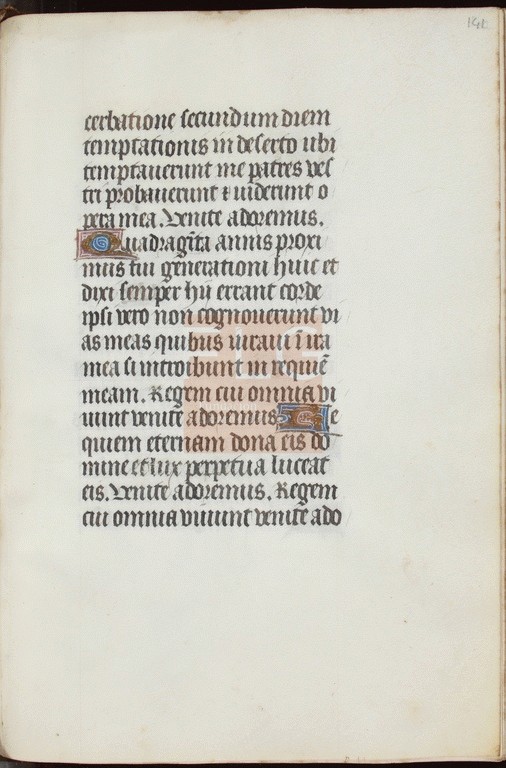 141
cerbatione secundum diem
temptationis in deserto ubi
temptauerunt me patres ves
tri probauerunt ⁊ uiderunt o
pera mea. Venite adoremus.
Quadragīta annis proxi
mus fui generationi huic et
dixi semper hii errant corde
ipsi vero non cognouerunt vi
as meas quibus iuraui ī ira
mea si introibunt in requiē
meam. Regem cui omnia vi
uunt venite adoremus Re
quiem eternam dona eis do
mine et lux perpetua luceat
eis. Venite adoremus. Regem
cui omnia viuunt venite ado
FLG